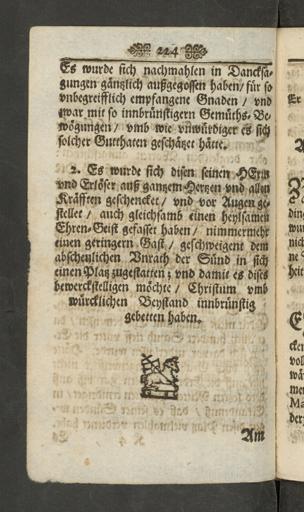 224
Es wurde sich nachmahlen in Dancksa-
gungen gäntzlich außgegossen haben/ für so
vnbegreifflich empfangene Gnaden / vnd
zwar mit so innbrünstigern Gemüths-Be-
wögungen / vmb wie vnwürdiger es sich
solcher Gutthaten geschätzet hätte.
2. Es wurde sich disen seinen HErrn
vnd Erlöser auß gantzem Hertzen vnd allen
Kräfften geschencket / vnd vor Augen ge-
stellet / auch gleichsamb einen heylsamen
Ehren-Geist gefasset haben / nimmermehr
einen geringern Gast / geschweigent dem
abscheulichen Vnrath der Sünd in sich
einen Platz zugestatten; vnd damit es dises
bewerckstelligen möchte / Christum vmb
würcklichen Beystand innbrünstig
gebetten haben.
Am